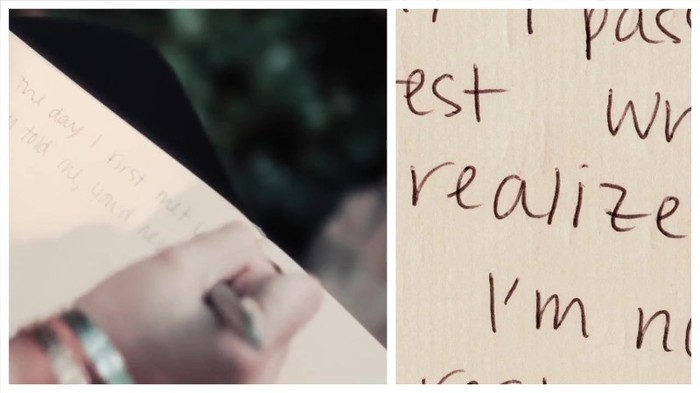 the day I first met
told me, you'd
I pas
est wr
realize
I'm no